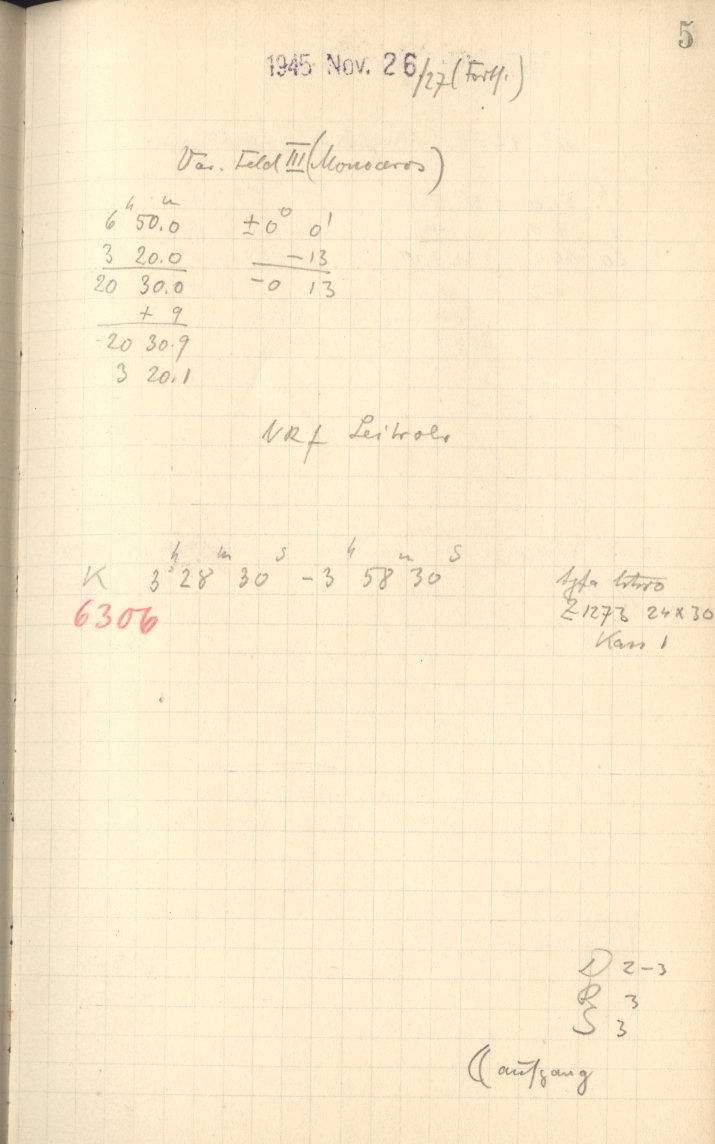 5
1945 Nov. 26/27 (Fortf.)
Var. Feld III (Monoceros)
6ʰ 50.0ᵐ ±0° 0'
3 20.0 -13
20 30.0 -0 13
+ 9
20 30.9
3 20.1
K 3ʰ 28ᵐ 30ˢ - 3ʰ 58ᵐ 30ˢ Agfa
6306 Z 1273 24x30
Kass 1
D 2-3
R 3
S 3
aufgang